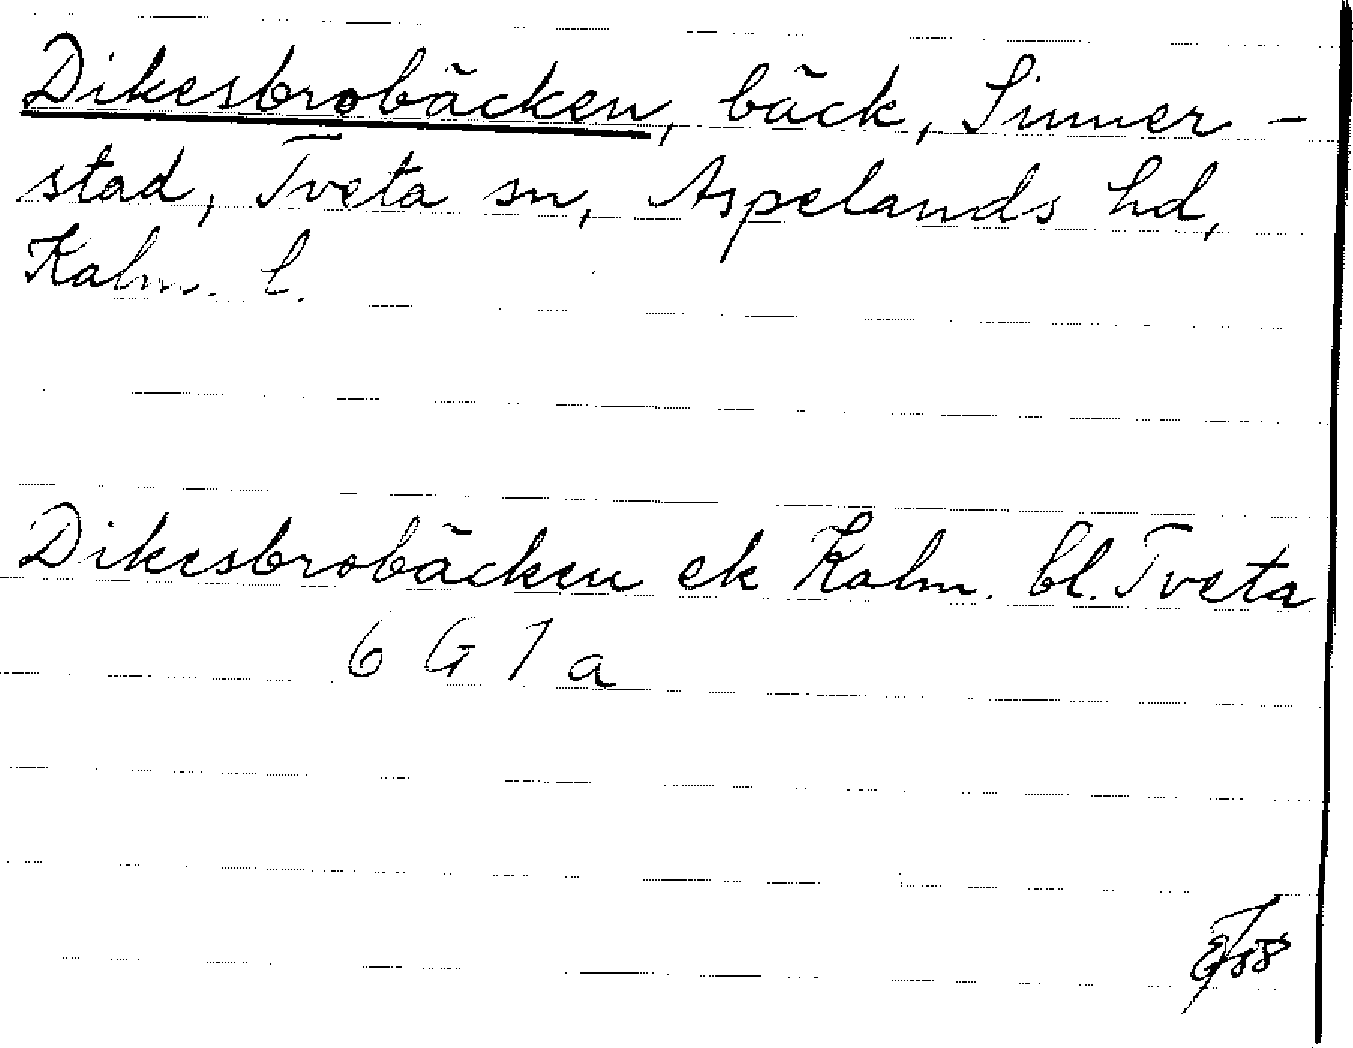 Dikesbrobäcken, bäck, Sinner-
stad, Tveta sn, Aspelands hd,
Kalm. l.
Dikesbrobäcken ek Kalm. bl. Tveta
6 G 1 a